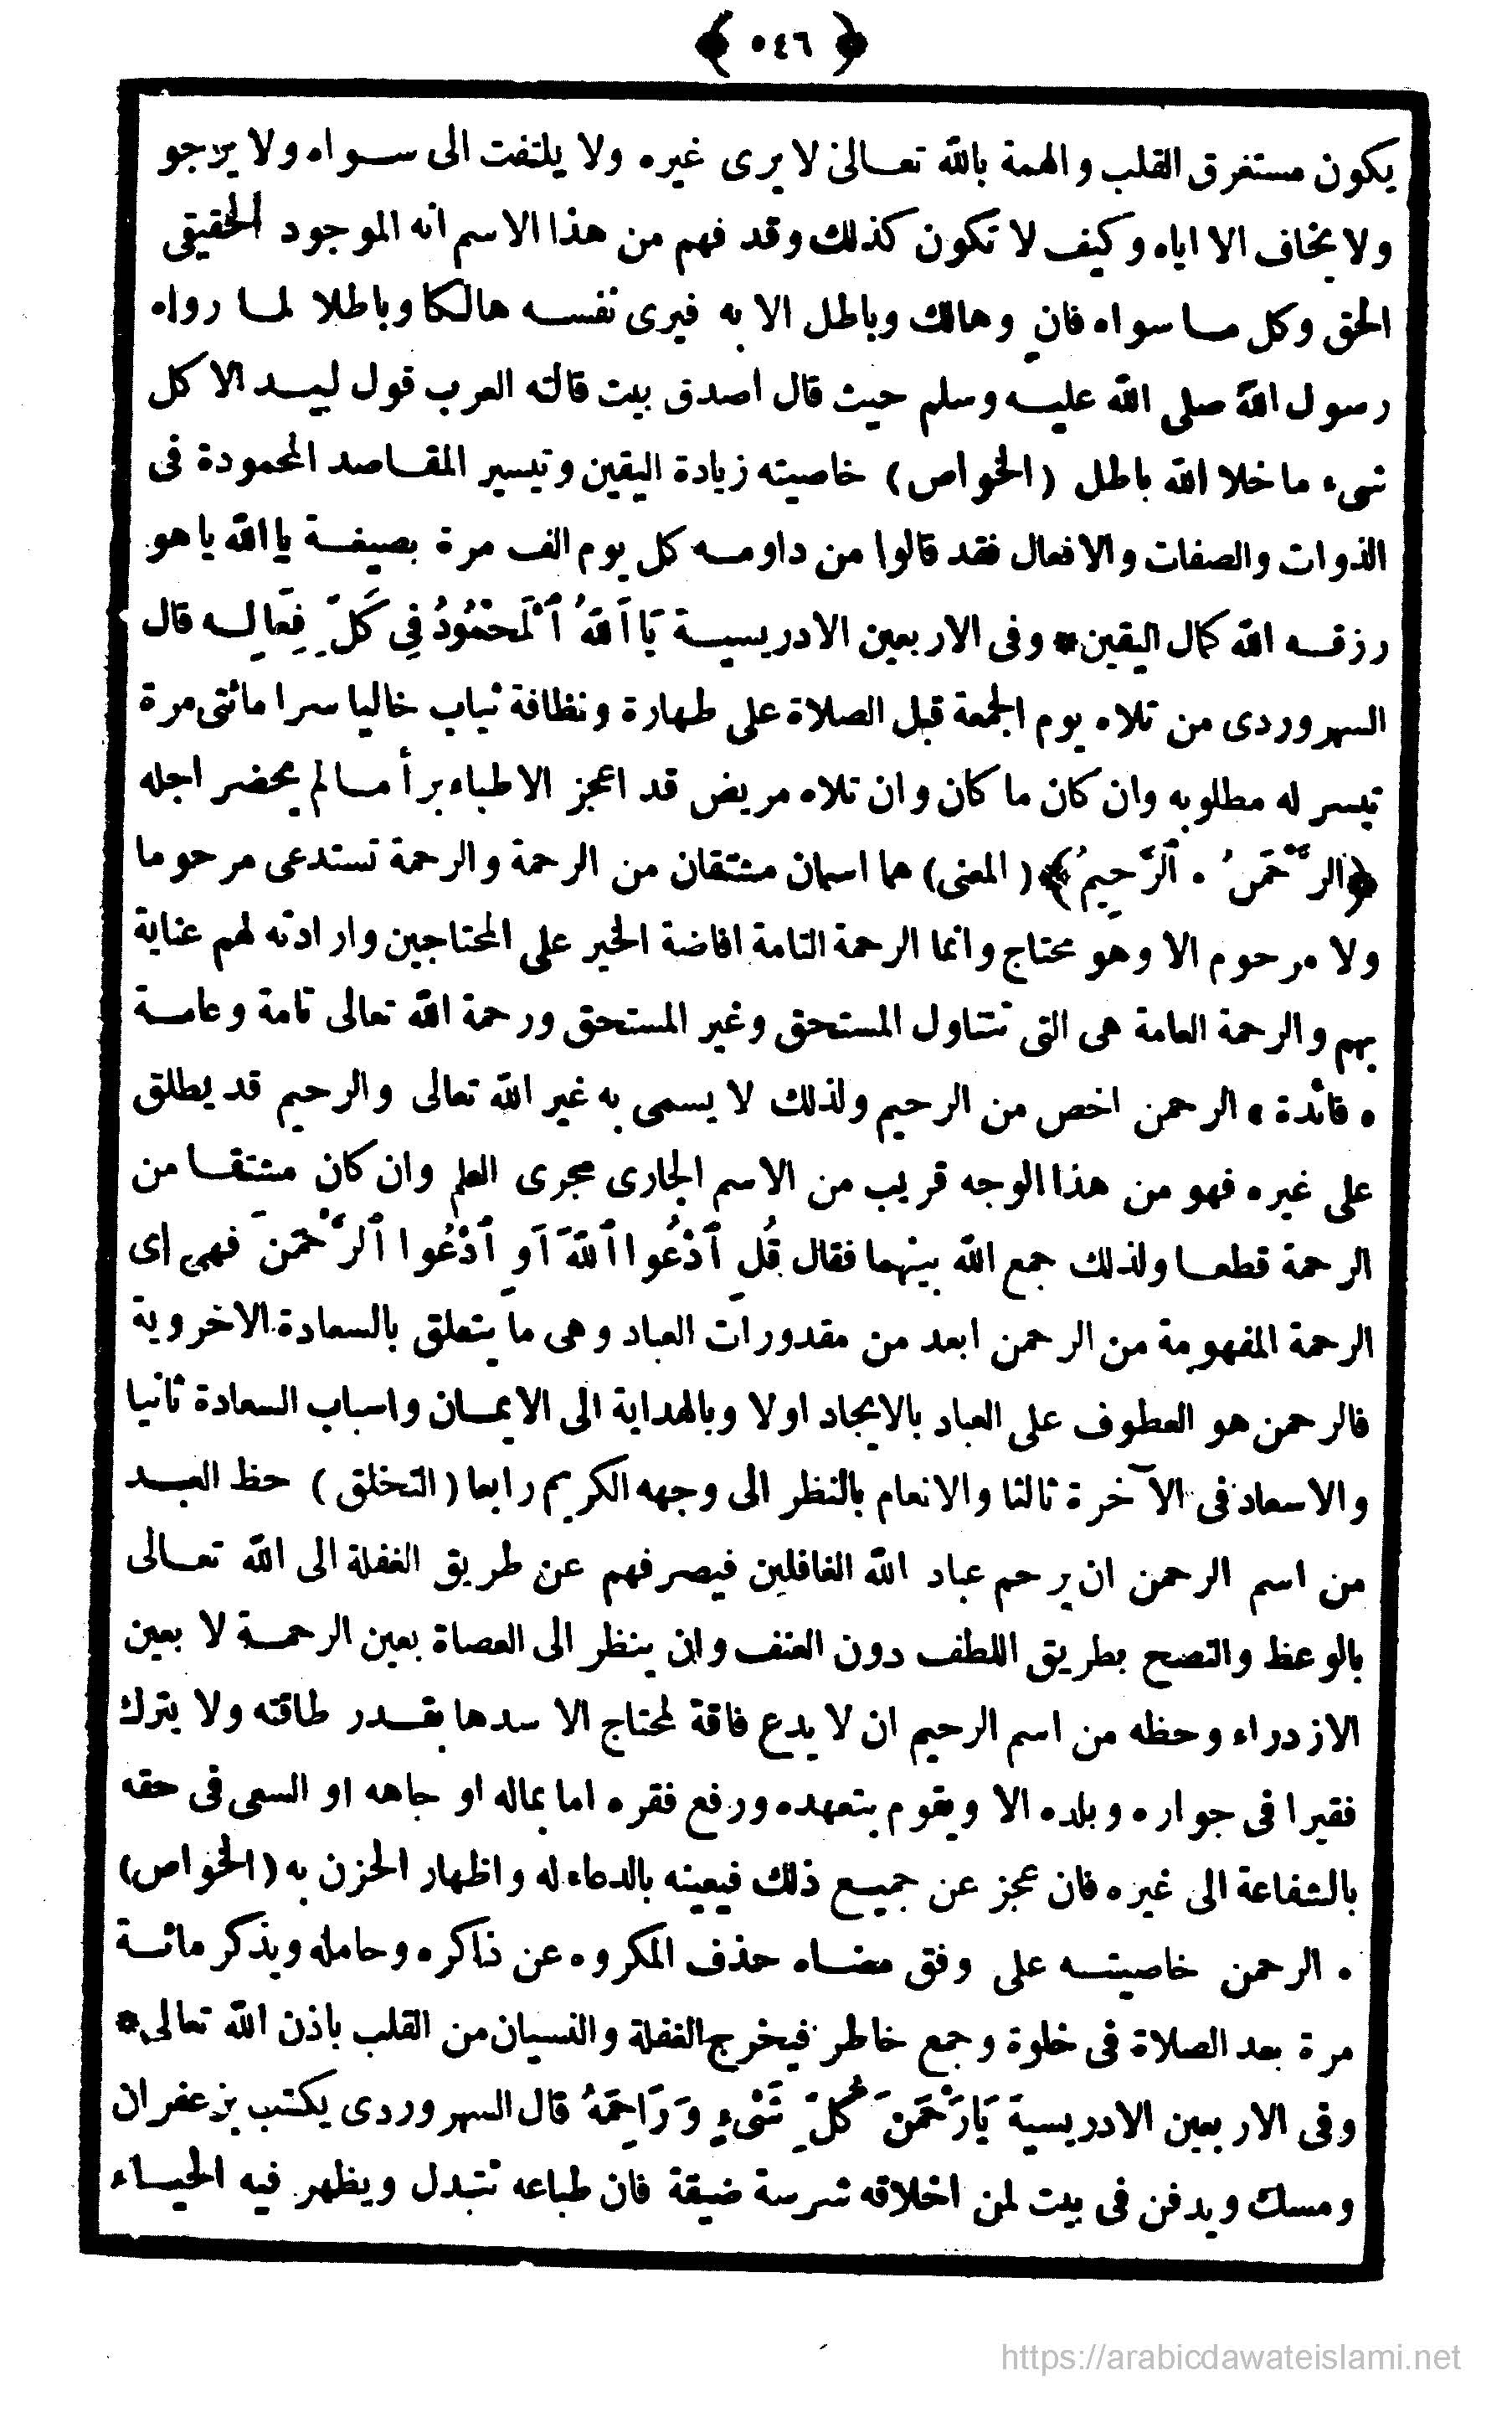 ﴿ ٥٤٦ ﴾
يكون مستغرق القلب والهمة بالله تعالى لا يرى غيره ولا يلتفت الى سواه ولا يرجو
ولا يخاف الا اياه وكيف لا تكون كذلك وقد فهم من هذا الاسم انه الموجود الحقيقى
الحق وكل ما سواه فانٍ وهالك وباطل الا به فيرى نفسه هالكا وباطلا لما رواه
رسول الله صلى الله عليه وسلم حيث قال اصدق بيت قالته العرب قول لبيد الا كل
شىء ما خلا الله باطل (الخواص) خاصيته زيادة اليقين وتيسير المقاصد المحمودة فى
الذوات والصفات والافعال فقد قالوا من داومه كل يوم الف مرة بصيغة يا الله يا هو
رزقه الله كمال اليقين * وفى الاربعين الادريسية يَا اَللهُ ٱلْمَحْمُودُ فِي كُلِّ فِعَالِه قال
السهروردى من تلاه يوم الجمعة قبل الصلاة على طهارة ونظافة ثياب خاليا سرا مائتى مرة
تيسر له مطلوبه وان كان ما كان وان تلاه مريض قد اعجز الاطباء برأ مالم يحضر اجله
﴿الرَّحْمَنُ ٠ ٱلرَّحِيمُ﴾ (المعنى) هما اسمان مشتقان من الرحمة والرحمة تستدعى مرحوما
ولا مرحوم الا وهو محتاج وانما الرحمة التامة افاضة الخير على المحتاجين وارادته لهم عناية
بهم والرحمة العامة هى التى تتناول المستحق وغير المستحق ورحمة الله تعالى تامة وعامة
٠ فائدة ٠ الرحمن اخص من الرحيم ولذلك لا يسمى به غير الله تعالى والرحيم قد يطلق
على غيره فهو من هذا الوجه قريب من الاسم الجارى مجرى العلم وان كان مشتقا من
الرحمة قطعا ولذلك جمع الله بينهما فقال قُلِ ٱدْعُوا ٱللهَ اَوِ ٱدْعُوا ٱلرَّحْمَنَ فهى اى
الرحمة المفهومة من الرحمن ابعد من مقدورات العباد وهى ما يتعلق بالسعادة الاخروية
فالرحمن هو العطوف على العباد بالايجاد اولا وبالهداية الى الايمان واسباب السعادة ثانيا
والاسعاد فى الآخرة ثالثا والانعام بالنظر الى وجهه الكريم رابعا (التخلق) حظ العبد
من اسم الرحمن ان يرحم عباد الله الغافلين فيصرفهم عن طريق الغفلة الى الله تعالى
بالوعظ والنصح بطريق اللطف دون العنف وان ينظر الى العصاة بعين الرحمة لا بعين
الازدراء وحظه من اسم الرحيم ان لا يدع فاقة لمحتاج الا سدها بقدر طاقته ولا يترك
فقيرا فى جواره وبلده الا ويقوم بتعهده ورفع فقره اما بماله او جاهه او السعى فى حقه
بالشفاعة الى غيره فان عجز عن جميع ذلك فيعينه بالدعاء له واظهار الحزن به (الخواص)
٠ الرحمن خاصيته على وفق معناه حذف المكروه عن ذاكره وحامله ويذكر مائة
مرة بعد الصلاة فى خلوة وجمع خاطر فيخرج الغفلة والنسيان من القلب باذن الله تعالى *
وفى الاربعين الادريسية يَارَحْمَنَ كُلِّ شَىْءٍ وَرَاحِمَهُ قال السهروردى يكتب بزعفران
ومسك ويدفن فى بيت لمن اخلاقه شرسة ضيقة فان طباعه تتبدل ويظهر فيه الحياء
https://arabicdawateislami.net